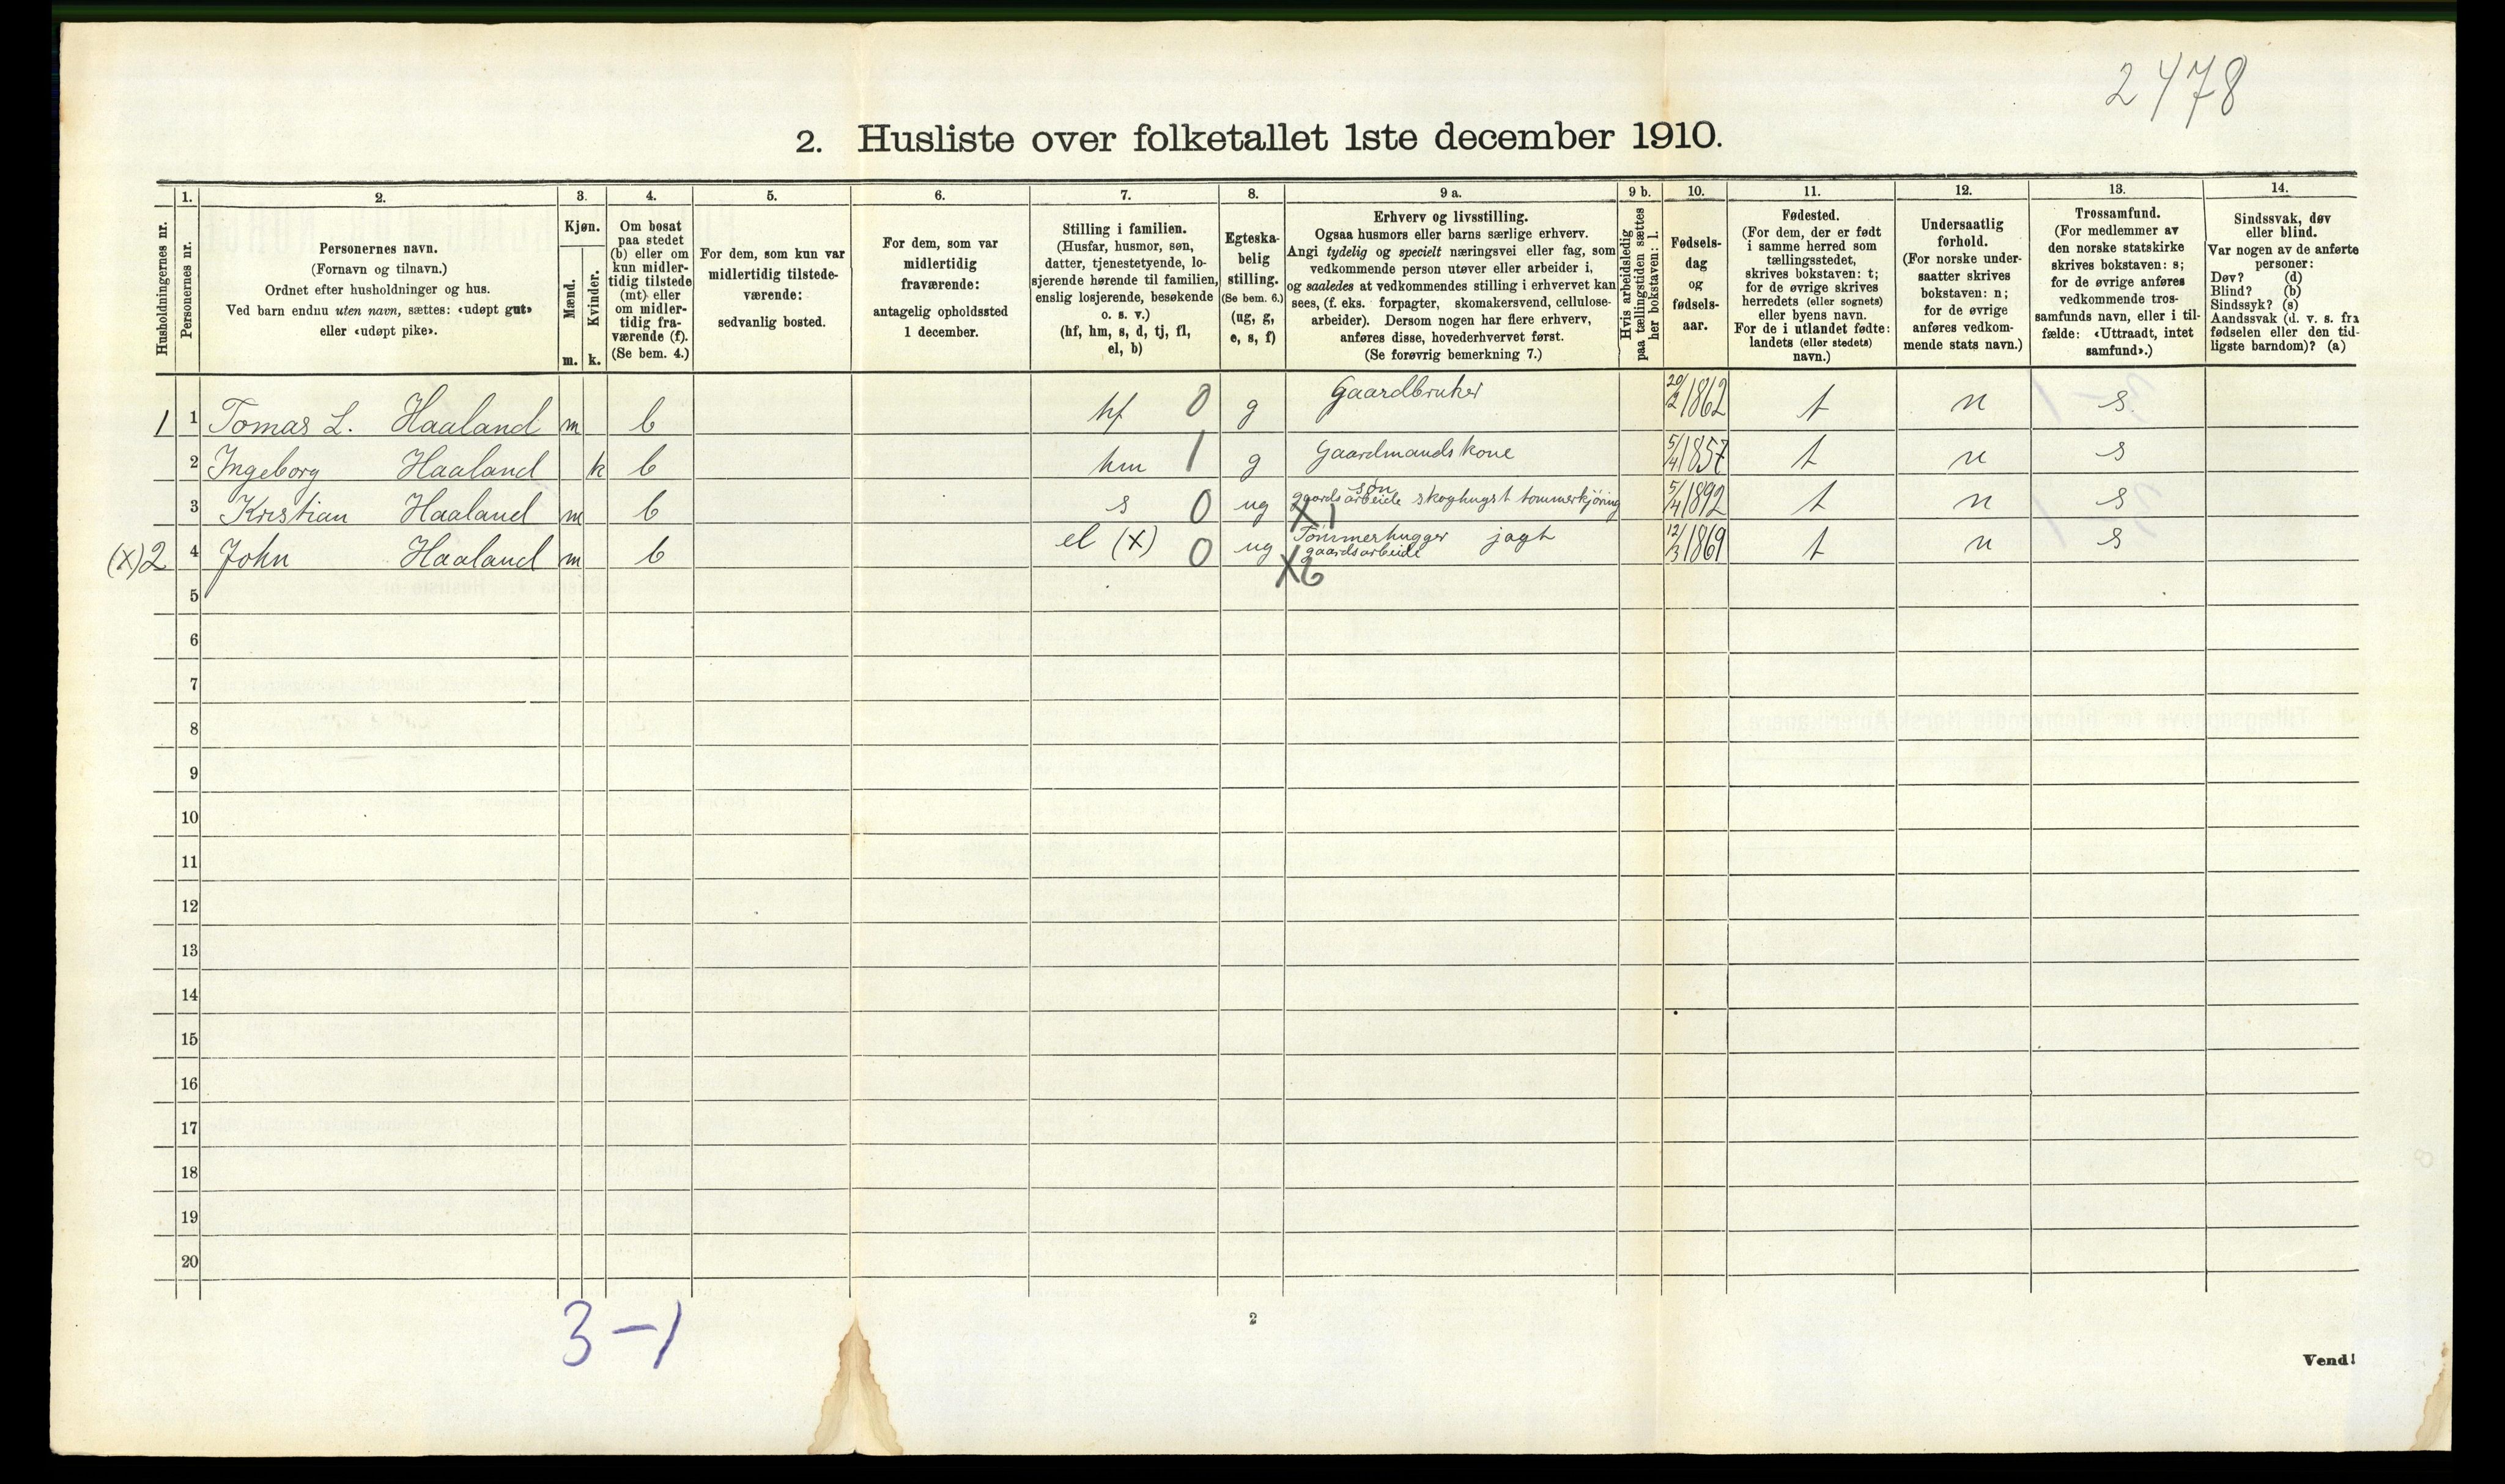 2478
2. Husliste over folketallet 1ste december 1910.
1. 2. 3. 4. 5. 6. 7. 8. 9 a. 9 b. 10. 11. 12. 13. 14.
Husholdningernes nr.
Personernes nr.
Personernes navn.
(Fornavn og tilnavn.)
Ordnet efter husholdninger og hus.
Ved barn endnu uten navn, sættes: «udøpt gut»
eller «udøpt pike».
Kjøn.
Mænd.
Kvinder.
m. k.
Om bosat
paa stedet
(b) eller om
kun midler-
tidig tilstede
(mt) eller
om midler-
tidig fra-
værende (f).
(Se bem. 4.)
For dem, som kun var
midlertidig tilstede-
værende:
sedvanlig bosted.
For dem, som var
midlertidig
fraværende:
antagelig opholdssted
1 december.
Stilling i familien.
(Husfar, husmor, søn,
datter, tjenestetyende, lo-
sjerende hørende til familien,
enslig losjerende, besøkende
o. s. v.)
(hf, hm, s, d, tj, fl,
el, b)
Egteska-
belig
stilling.
(Se bem. 6.)
(ug, g,
e, s, f)
Erhverv og livsstilling.
Ogsaa husmors eller barns særlige erhverv.
Angi tydelig og specielt næringsvei eller fag, som
vedkommende person utøver eller arbeider i,
og saaledes at vedkommendes stilling i erhvervet kan
sees, (f. eks. forpagter, skomakersvend, cellulose-
arbeider). Dersom nogen har flere erhverv,
anføres disse, hovederhvervet først.
(Se forøvrig bemerkning 7.)
Hvis arbeidsledig
paa tællingstiden sættes
her bokstaven: l.
Fødsels-
dag
og
fødsels-
aar.
Fødested.
(For dem, der er født
i samme herred som
tællingsstedet,
skrives bokstaven: t;
for de øvrige skrives
herredets (eller sognets)
eller byens navn.
For de i utlandet fødte:
landets (eller stedets)
navn.)
Undersaatlig
forhold.
(For norske under-
saatter skrives
bokstaven: n;
for de øvrige
anføres vedkom-
mende stats navn.)
Trossamfund.
(For medlemmer av
den norske statskirke
skrives bokstaven: s;
for de øvrige anføres
vedkommende tros-
samfunds navn, eller i til-
fælde: «Uttraadt, intet
samfund».)
Sindssvak, døv
eller blind.
Var nogen av de anførte
personer:
Døv? (d)
Blind? (b)
Sindssyk? (s)
Aandssvak (d. v. s. fra
fødselen eller den tid-
ligste barndom)? (a)
1 1 Tomas L. Haaland m b hf 0 g Gaardbruker 20/2 1862 t n s.
2 Ingeborg Haaland k b hm 1 g Gaardmandskone 5/4 1857 t n s
søn
3 Kristian Haaland m b s 0 ug gaardsarbeide skoghugst tømmerkjøring 5/4 1892 t n s
X 1
(X) 2 4 John Haaland m b el (X) 0 ug Tømmerhugger jagt 12/3 1869 t n s
gaardsarbeide
X6
5
6
7
8
9
10
11
12
13
14
15
16
17
18
19
20
3-1
2
Vend!